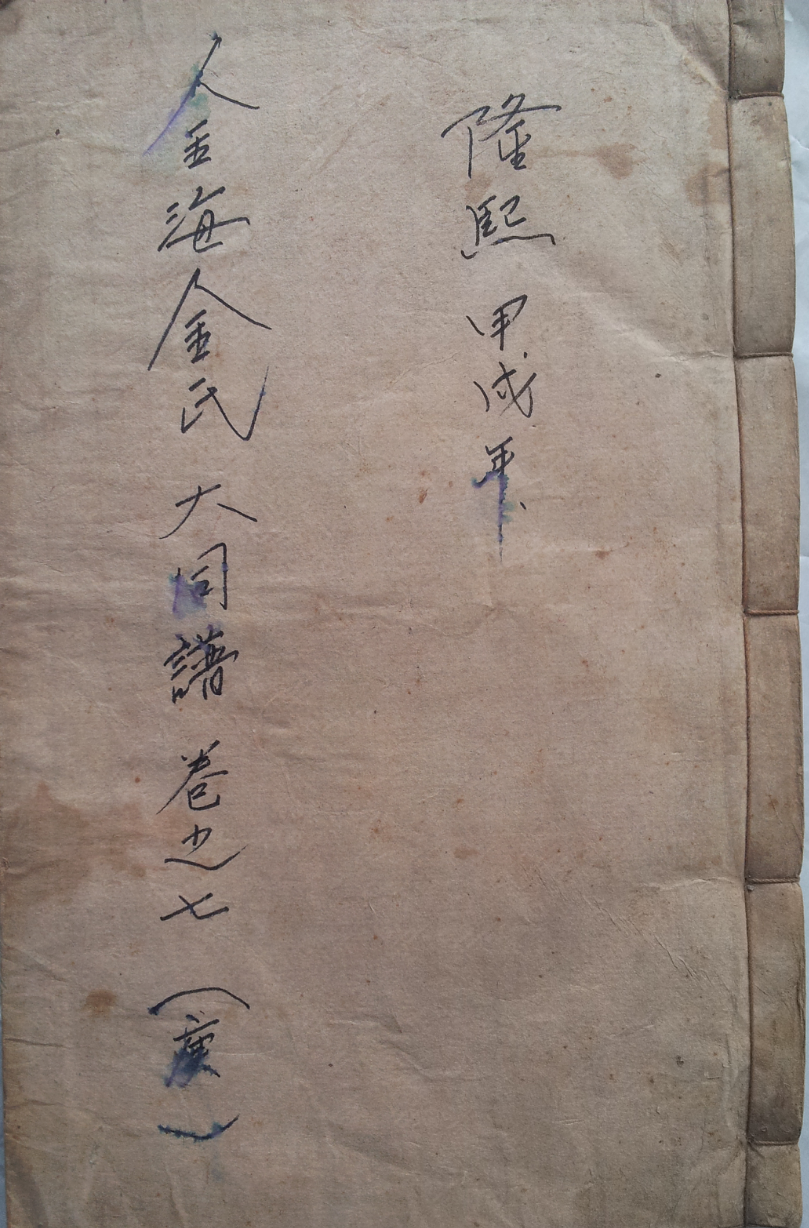 隆熙 甲戌年
金海金氏 大同譜 卷之七 (庚)